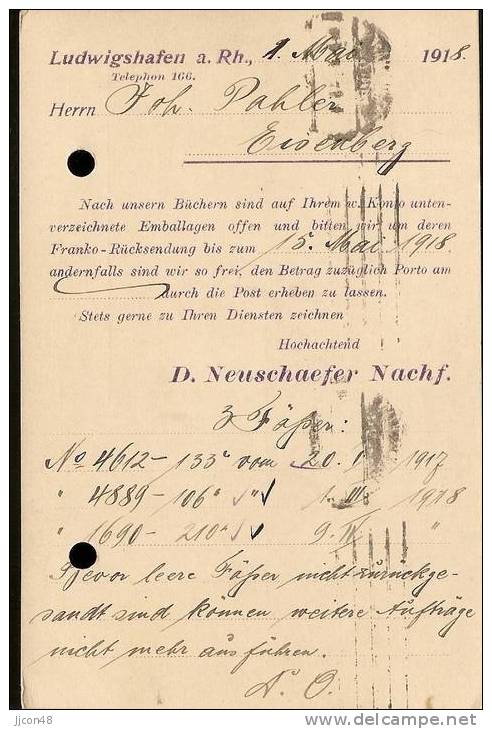 Ludwigshafen a. Rh., 1. Mai 1918.
Telephon 166.
Herrn Joh. Pahler
Eisenberg
Nach unsern Büchern sind auf Ihrem w. Konto unten-
verzeichnete Emballagen offen und bitten wir um deren
Franko-Rücksendung bis zum 15. Mai 1918
andernfalls sind wir so frei, den Betrag zuzüglich Porto am
durch die Post erheben zu lassen.
Stets gerne zu Ihren Diensten zeichnen
Hochachtend
D. Neuschaefer Nachf.
3 Fäßer:
No 4612 - 133 vom 20. 1917
" 4889 - 106 " " 1. III. 1918
" 1690 - 210 " " 9. "
Bevor leere Fäßer nicht zurückge-
sandt sind können weitere Aufträge
nicht mehr ausführen.
D. O.
jjcon48
delcampe.net